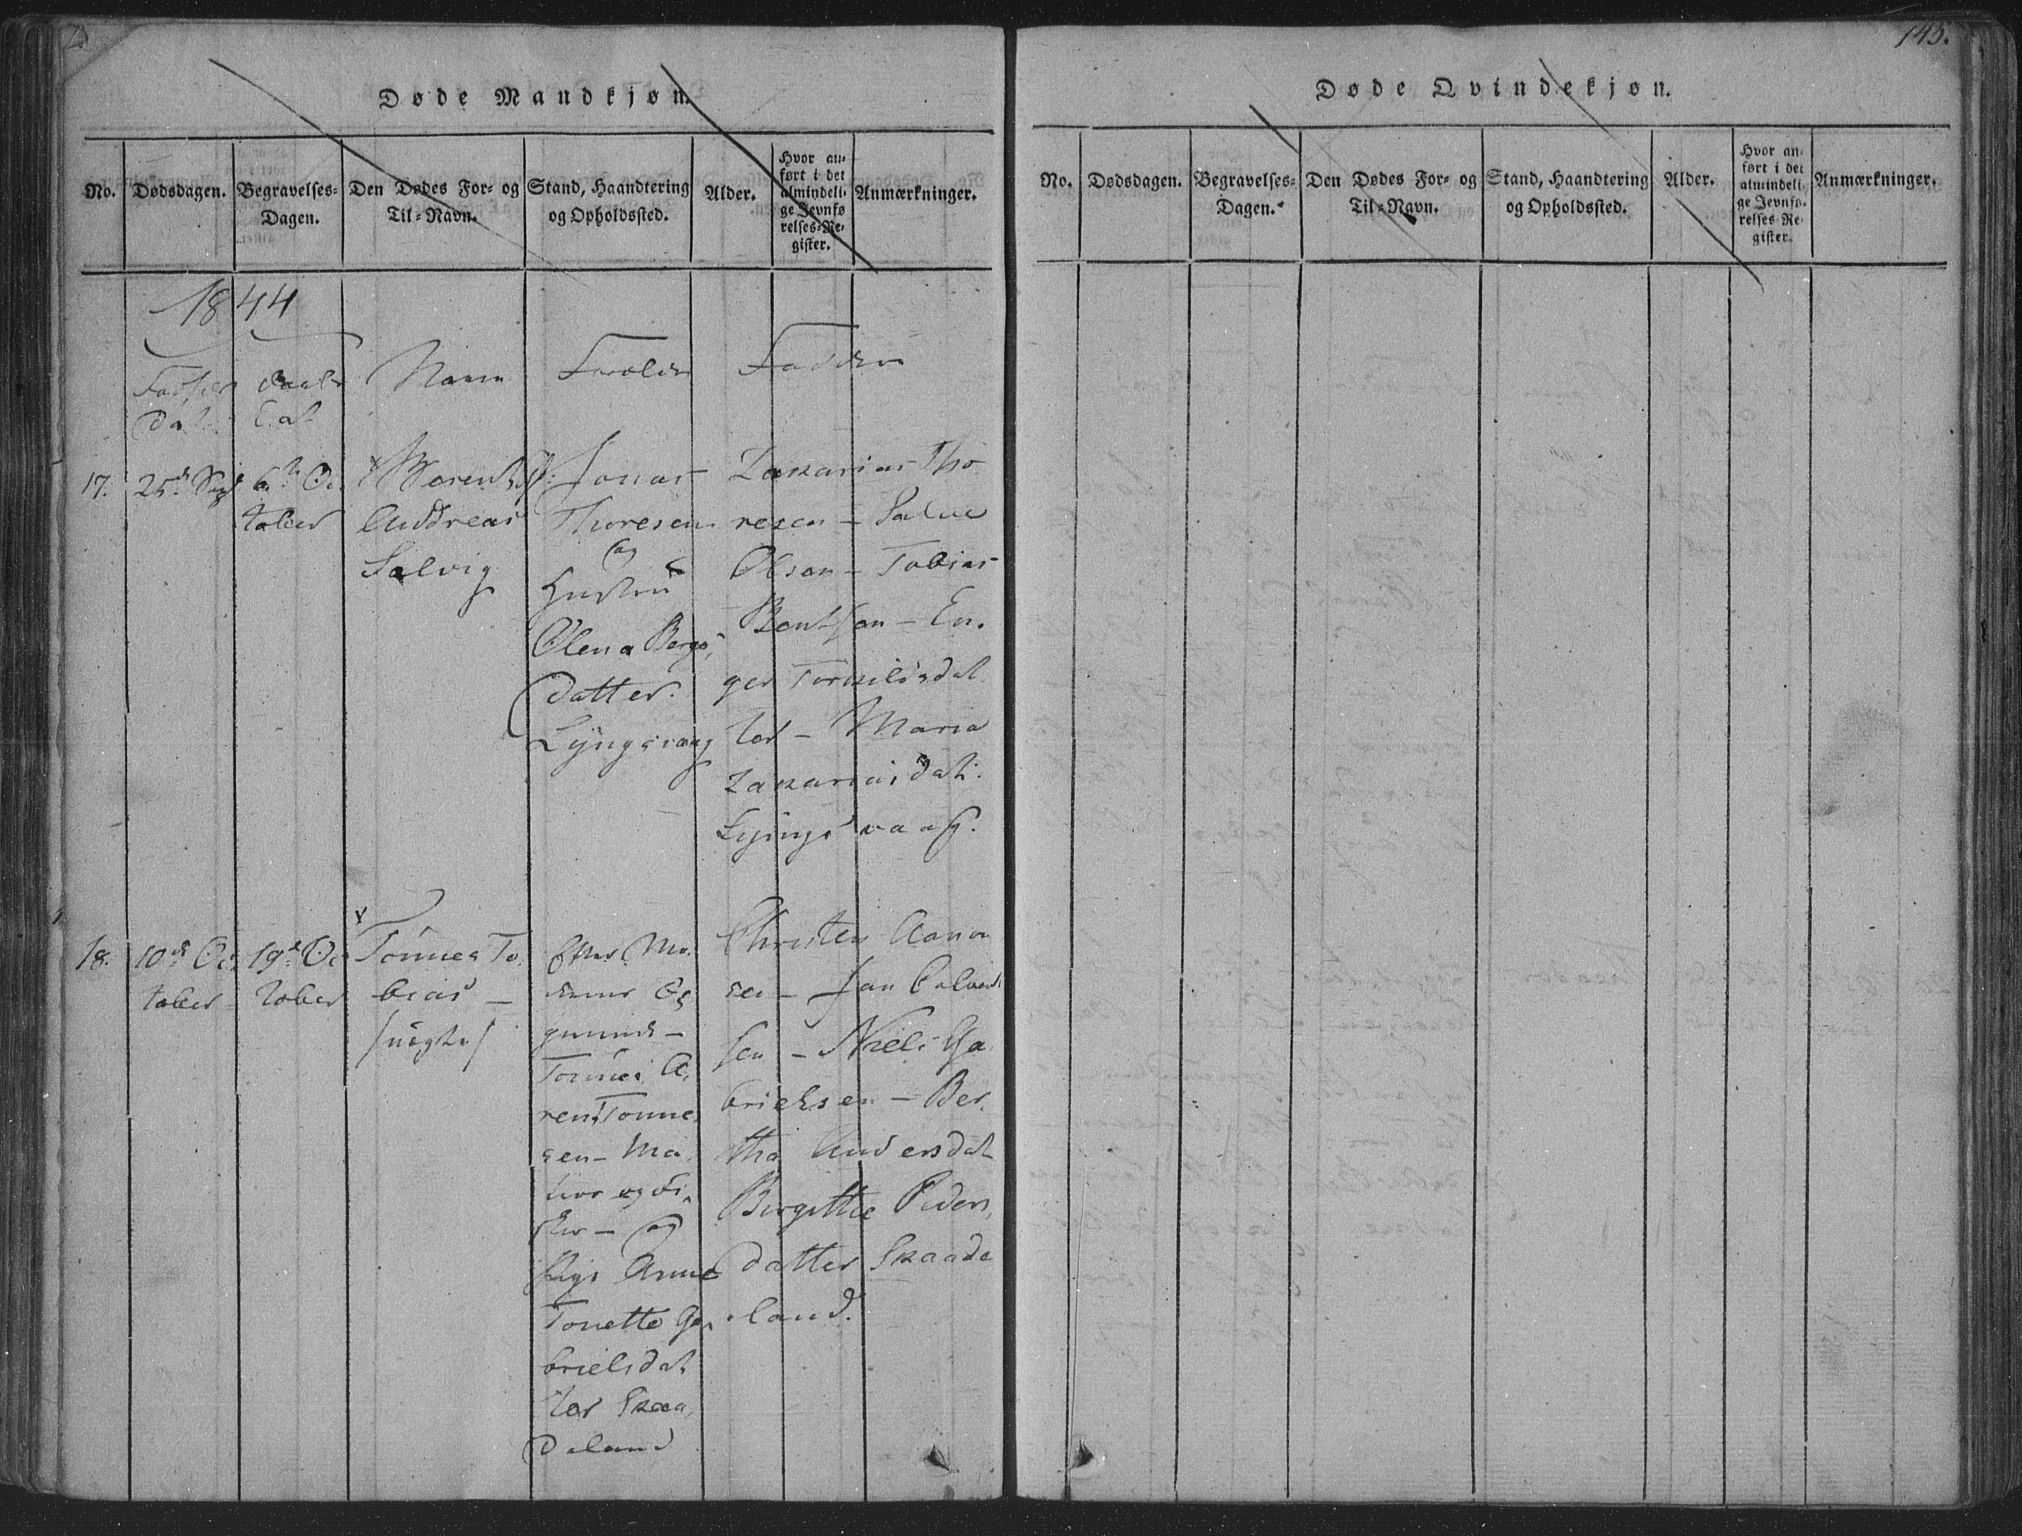 145.
Døde Mandkjøn.
No.
Dødsdagen.
Begravelses-
Dagen.
Den Dødes For- og
Til-Navn.
Stand, Haandtering
og Opholdssted.
Alder.
Hvor an-
ført i det
almindeli-
ge Jevnfø-
relses-Re-
gister.
Anmærkninger.
1844
Dat.
Navn
Forældr
Faddere
17.
25d Sept
6th Oc
tober
Andreas
Salvig
Jonas
Thoresen
og
Hustru
Olena Bergs,
datter.
Lyngsvaag
Zakarias Tho
resen – Salve
Olsen – Tobias
Bentsen – En.
ger Torkildsdat
ter – Maria
Zakarias dat.
Lyngsvaag.
18.
10d Oc
tober
19d Oc
tober
Tønnes To
bias –
/uægte/
Tønnes A,
rent Tonne,
sen – Ma
tros og Fi,
sker – og
Pige Anne
Tonette Ga,
brielsdat
ter Skaa,
deland
Christen Aanon
sen – Jan Calvert
sen – Niels Ga
brielsen – Ber,
tha Andersdat
Birgitthe Peders,
datter Skaade
land.
Døde Qvindekjøn.
No.
Dødsdagen.
Begravelses-
Dagen.
Den Dødes For- og
Til-Navn.
Stand, Haandtering
og Opholdssted.
Alder.
Hvor an-
ført i det
almindeli-
ge Jevnfø-
relses-Re-
gister.
Anmærkninger.